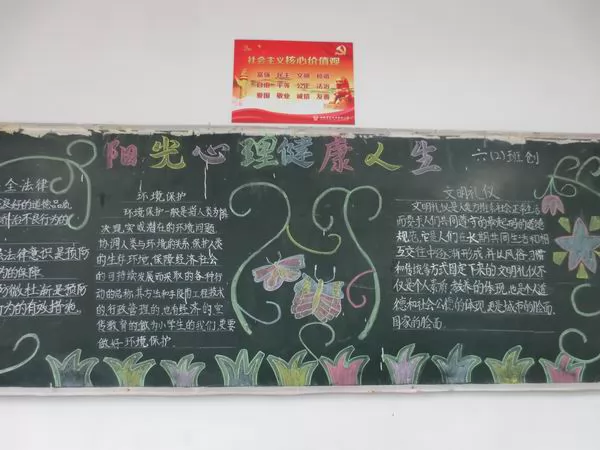 社会主义核心价值观
富强 民主 文明 和谐
自由 平等 公正 法治
爱国 敬业 诚信 友善
阳光心理健康人生
六(2)班 创
全法律
环境保护
环境保护一般是指人类为解
决现实或潜在的环境问题,
协调人类与环境的关系,保护人类
的生存环境,保障经济社会
的可持续发展而采取的各种行
动的总称,其方法和手段有工程技术
的行政管理的,也有经济的宣
传教育的,做为小学生的我们,更要
做好环境保护.
文明礼仪
文明礼仪是人类为维系社会正常生活
而要求人们共同遵守的最起码的道德
规范,它是人们在长期共同生活和相
互交往中逐渐形成,并以风俗、习惯
和传统等方式固定下来的文明礼仪不
仅是个人素质、教养的体现,也是个人道
德和社会公德的体现,更是城市的脸面、
国家的脸面.